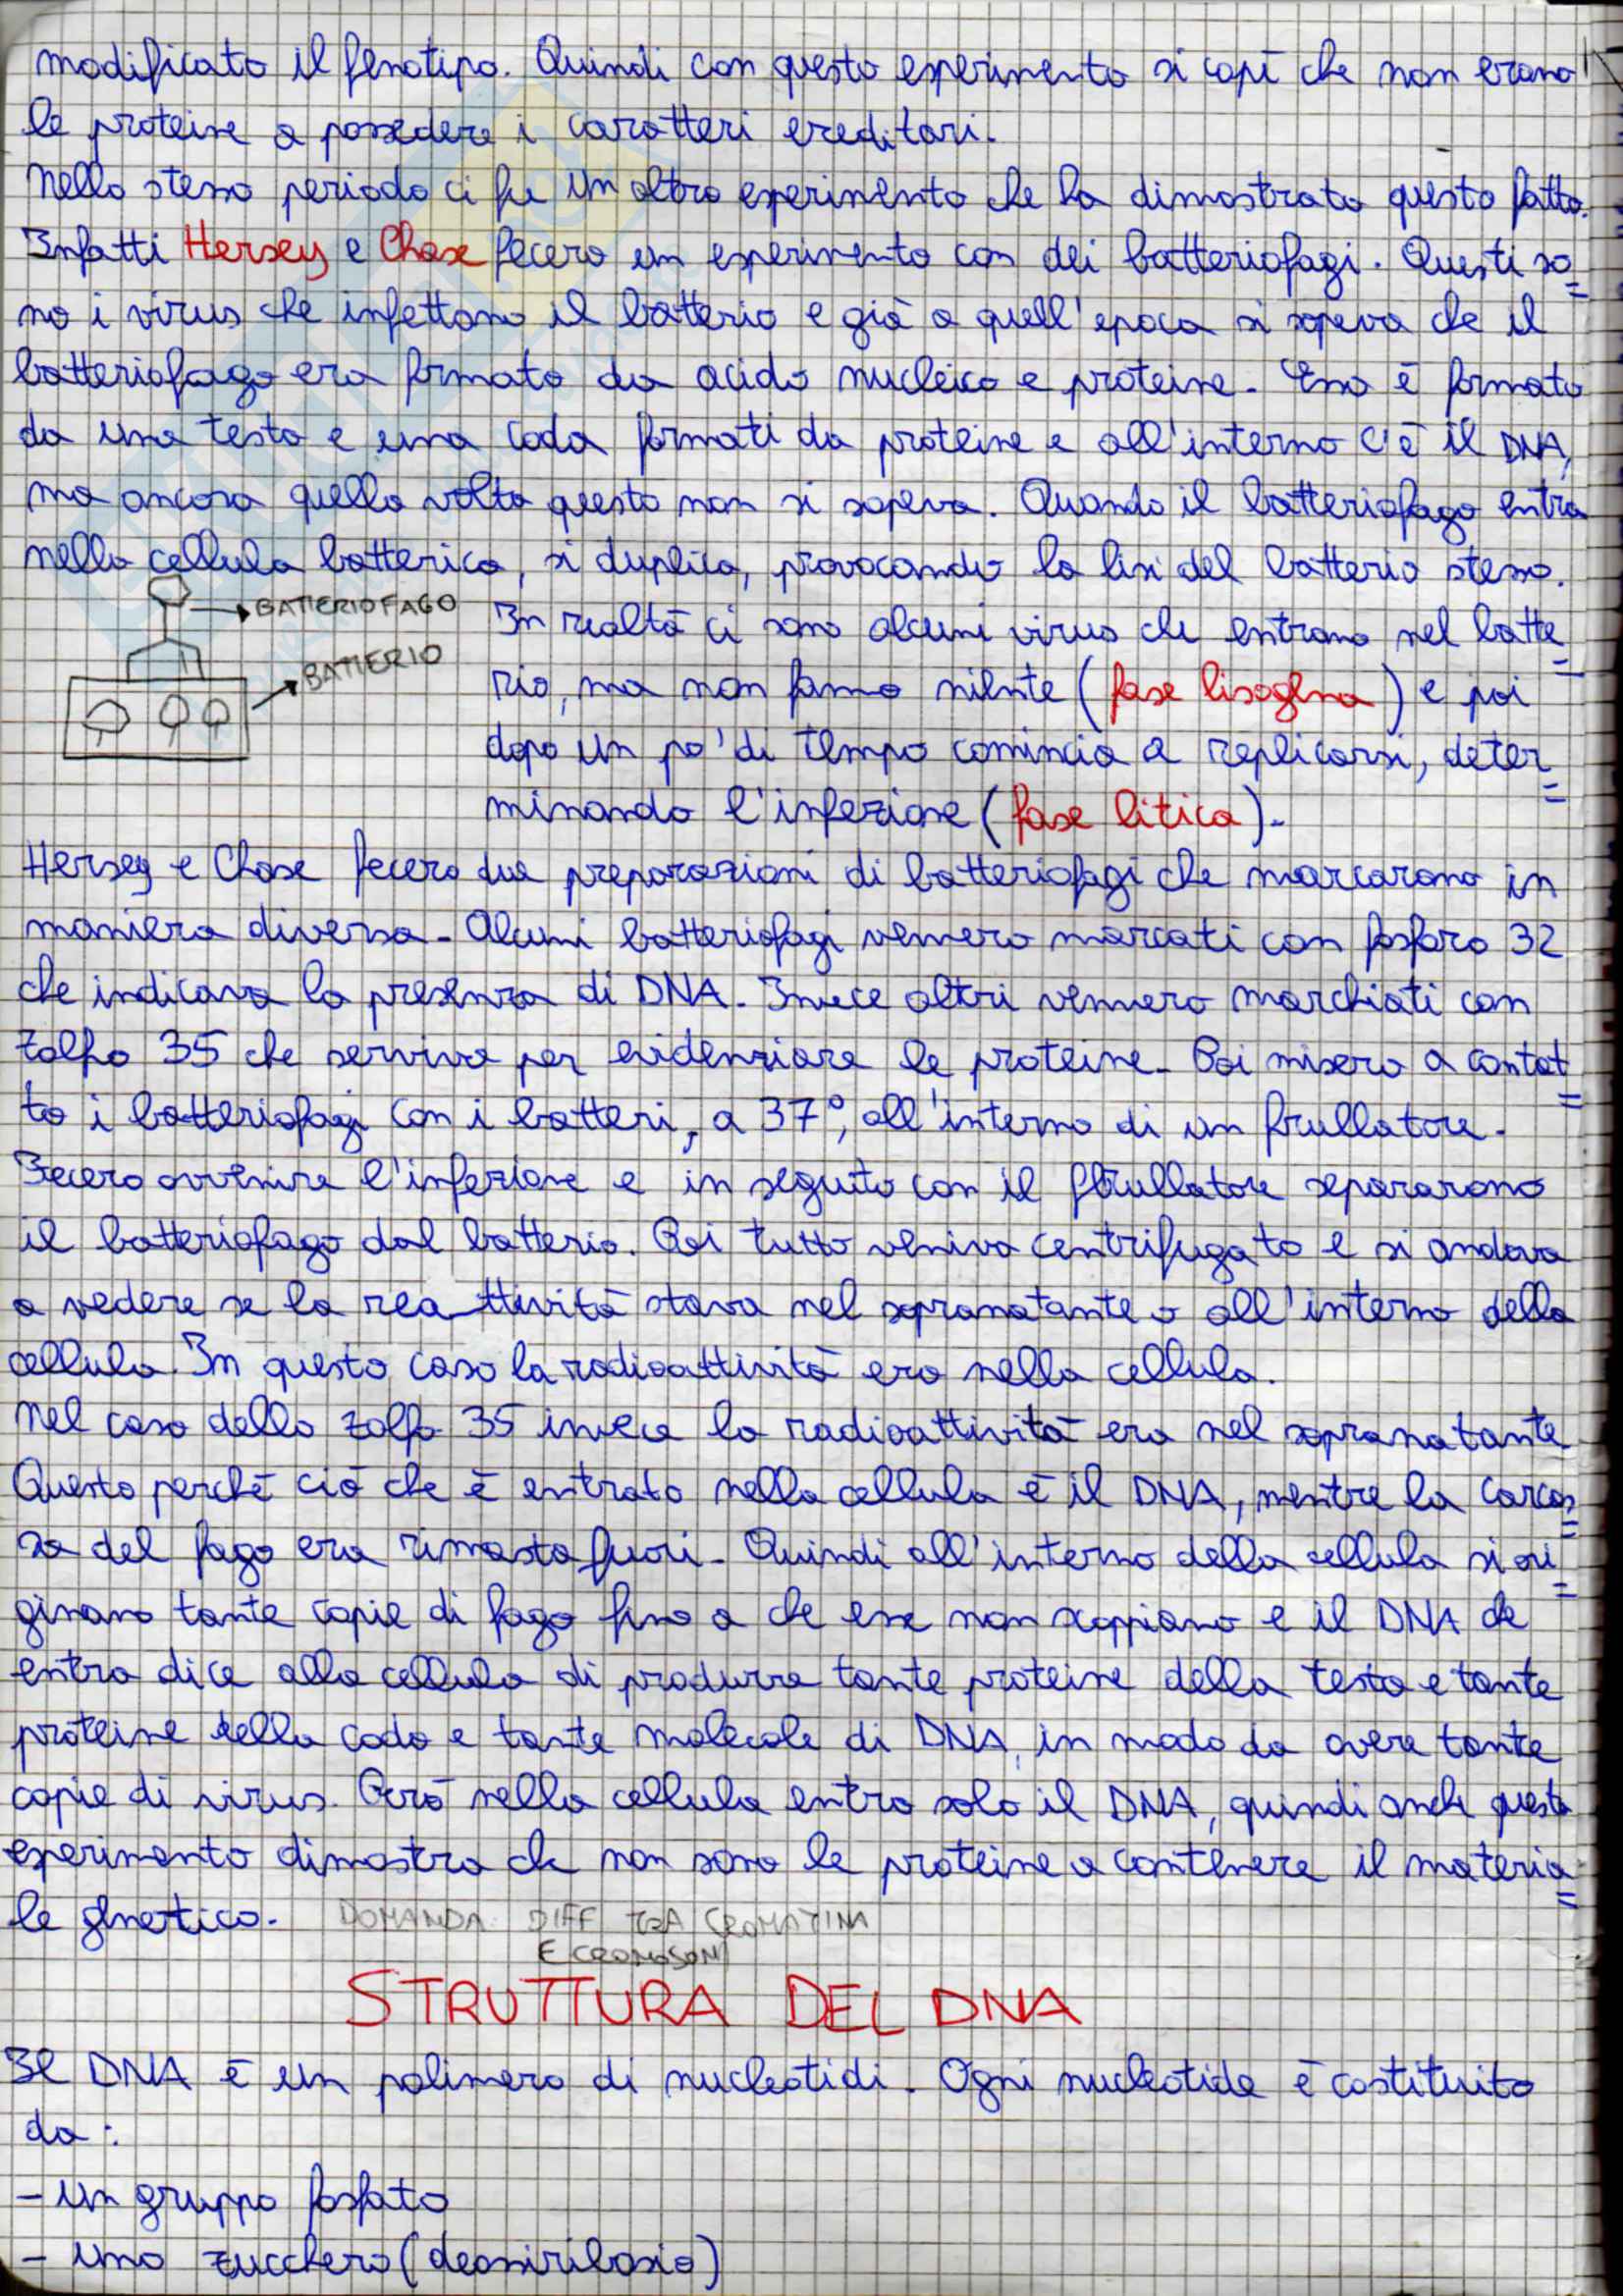 modificato il fenotipo. Quindi con questo esperimento si capì che non erano
le proteine a possedere i caratteri ereditari.
Nello stesso periodo ci fu un altro esperimento che ha dimostrato questo fatto.
Infatti Hersey e Chase fecero un esperimento con dei batteriofagi. Questi so=
no i virus che infettano il batterio e già a quell'epoca si sapeva che il
batteriofago era formato da acido nucleico e proteine. Esso è formato
da una testa e una coda formati da proteine e all'interno c'è il DNA,
ma ancora quella volta questo non si sapeva. Quando il batteriofago entra
nella cellula batterica, si duplica, provocando la lisi del batterio stesso.
BATTERIOFAGO
BATTERIO
In realtà ci sono alcuni virus che entrano nel batte=
rio, ma non fanno niente (fase lisogena) e poi
dopo un po' di tempo comincia a replicarsi, deter=
minando l'infezione (fase litica).
Hersey e Chase fecero due preparazioni di batteriofagi che marcarono in
maniera diversa. Alcuni batteriofagi vennero marcati con fosforo 32
che indicava la presenza di DNA. Invece altri vennero marchiati con
zolfo 35 che serviva per evidenziare le proteine. Poi misero a contat=
to i batteriofagi con i batteri, a 37°, all'interno di un frullatore.
Fecero avvenire l'infezione e in seguito con il frullatore separarono
il batteriofago dal batterio. Poi tutto veniva centrifugato e si andava
a vedere se la reattività stava nel sopranatante o all'interno della
cellula. In questo caso la radioattività era nella cellula.
Nel caso dello zolfo 35 invece la radioattività era nel sopranatante
Questo perché ciò che è entrato nella cellula è il DNA, mentre la carcas=
sa del fago era rimasta fuori. Quindi all'interno della cellula si ori=
ginano tante copie di fago fino a che esse non scoppiano e il DNA che
entra dice alla cellula di produrre tante proteine della testa e tante
proteine della coda e tante molecole di DNA, in modo da avere tante
copie di virus. Però nella cellula entra solo il DNA, quindi anche questo
esperimento dimostra che non sono le proteine a contenere il materia=
le genetico.
DOMANDA: DIFF TRA CROMATINA
E CROMOSOMI
STRUTTURA DEL DNA
Il DNA è un polimero di nucleotidi. Ogni nucleotide è costituito
da:
- un gruppo fosfato
- uno zucchero (deossiribosio)